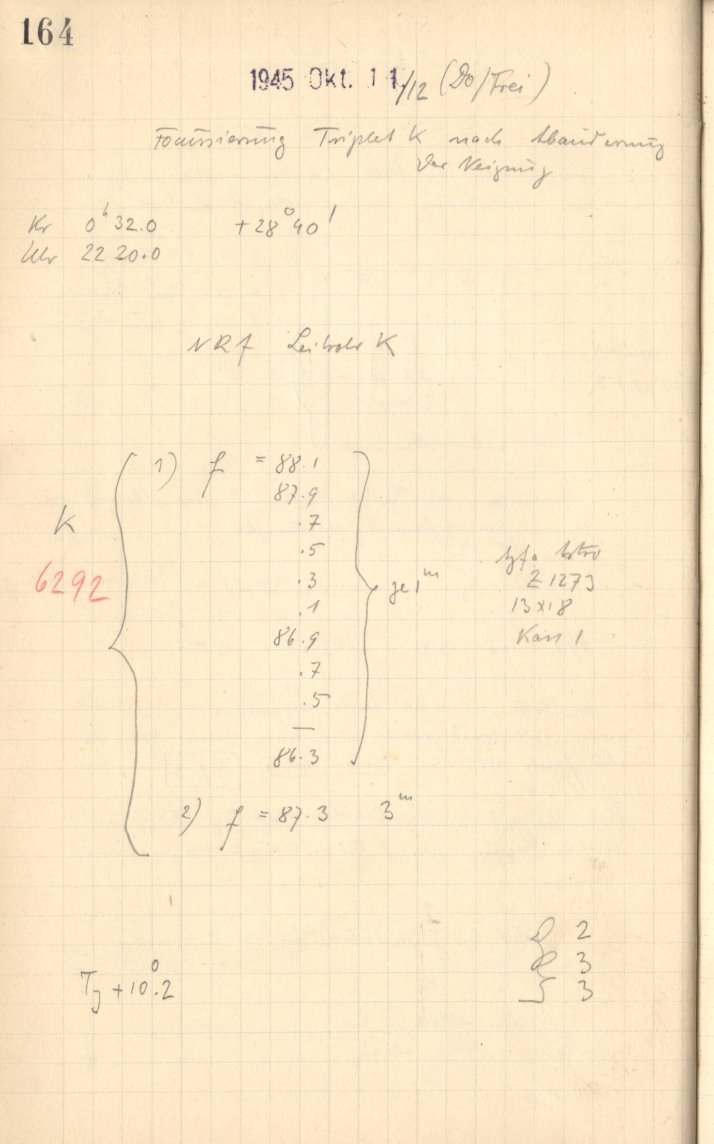 164
1945 Okt. 11/12 (Do/Frei)
Focussierung Triplet K nach Abänderung
der Neigung
Kr 0h 32.0 +28°40'
Uhr 22 20.0
Leitrohr K
1) f = 88.1
87.9
.7
K
.5
.3
6292
.1
je 1m
86.9
.7
.5
—
86.3
Agfa Astro
Z 1273
13x18
Kass 1
2) f = 87.3 3m
2
3
3
TJ +10°.2